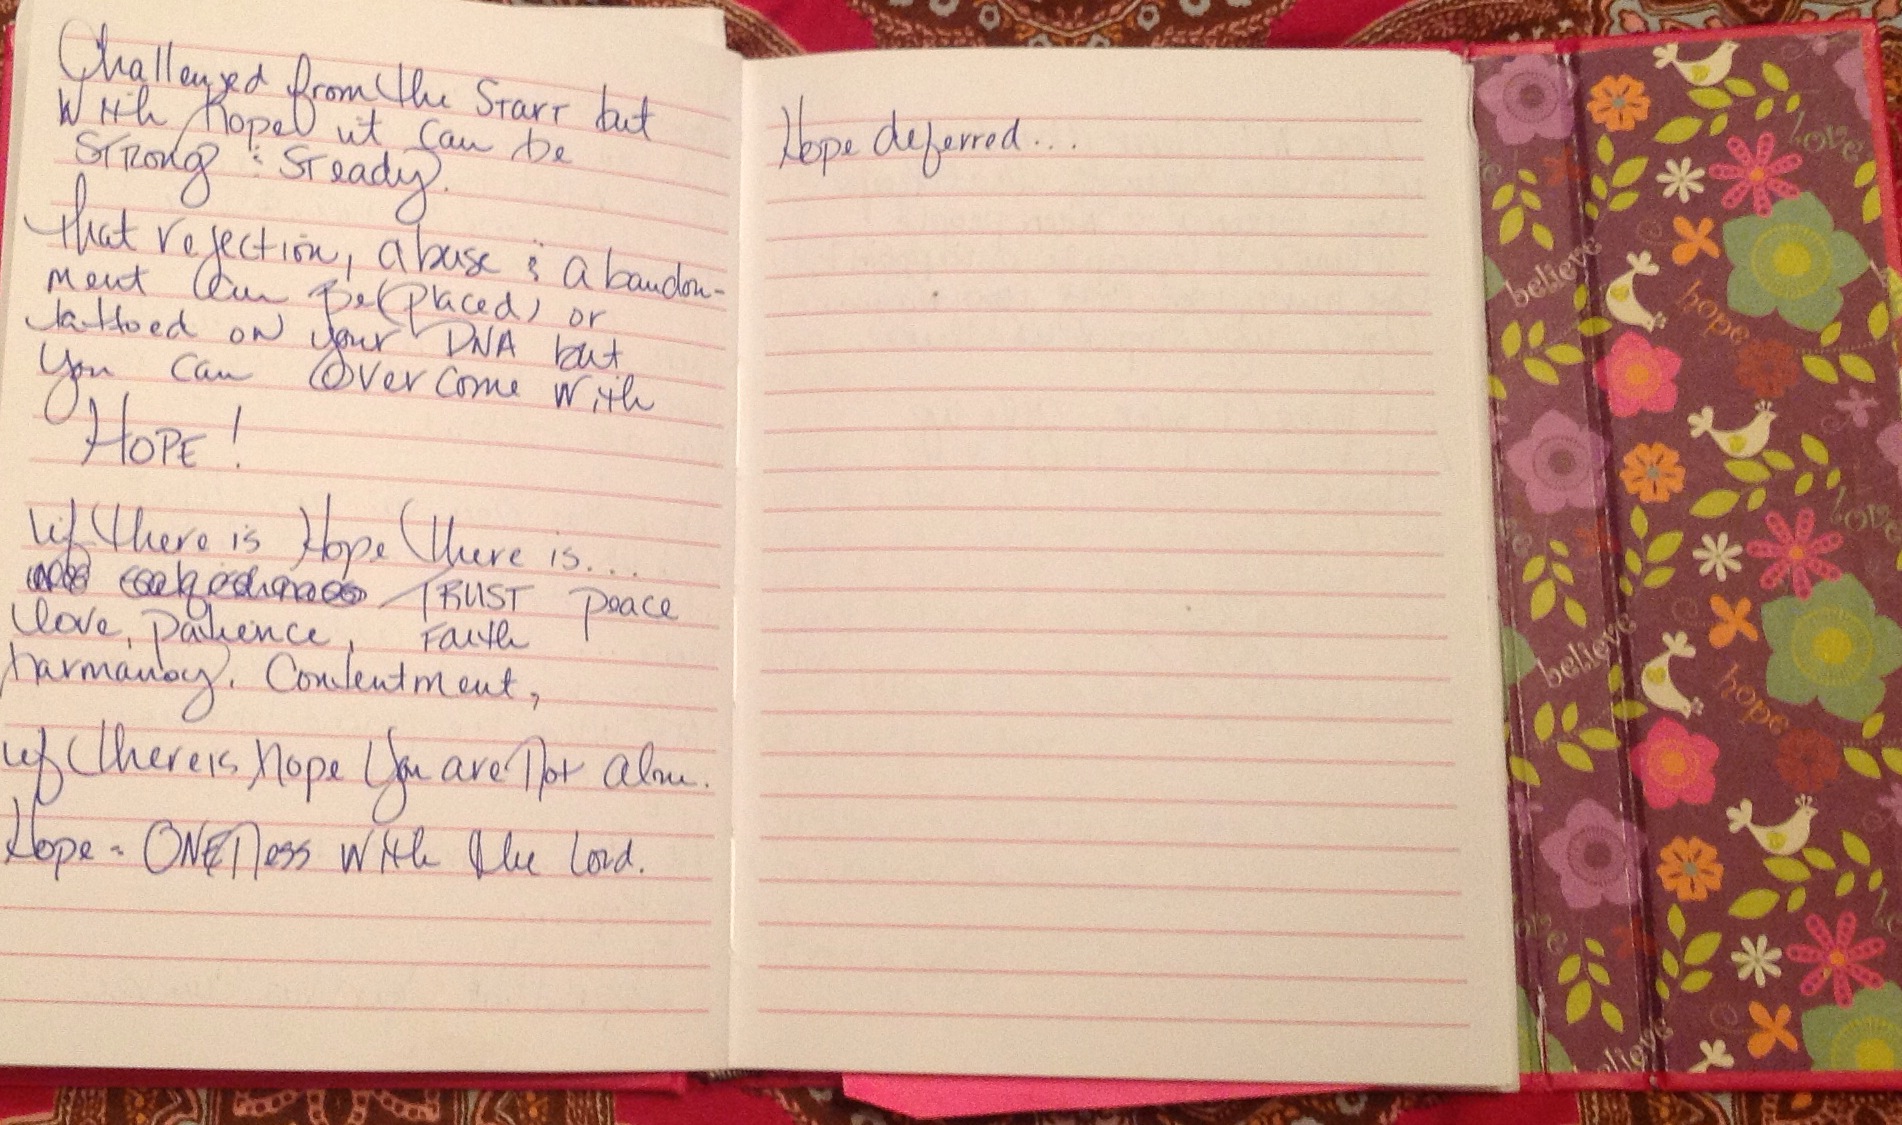 Challenged from the Start but
With hope it can be
Strong & Steady.
that rejection, abuse & abandon-
ment can be (placed) or
tattoed on your DNA but
you can Overcome with
HOPE!
if there is Hope there is...
TRUST peace
love, patience, Faith
harmanoy. Contentment,
if there is hope you are not alone.
Hope = ONENess with the Lord.
Hope deferred...
love
believe
hope
love
believe
hope
believe